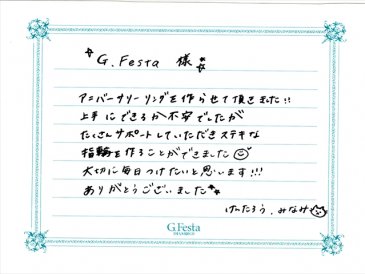 G.Festa 様
アニバーサリーリングを作らせて頂きました!!
上手にできるか不安でしたが
たくさんサポートしていただきステキな
指輪を作ることができました
大切に毎日つけたいと思います!!!
ありがとうございました
けんたろう、みなみ
G.Festa